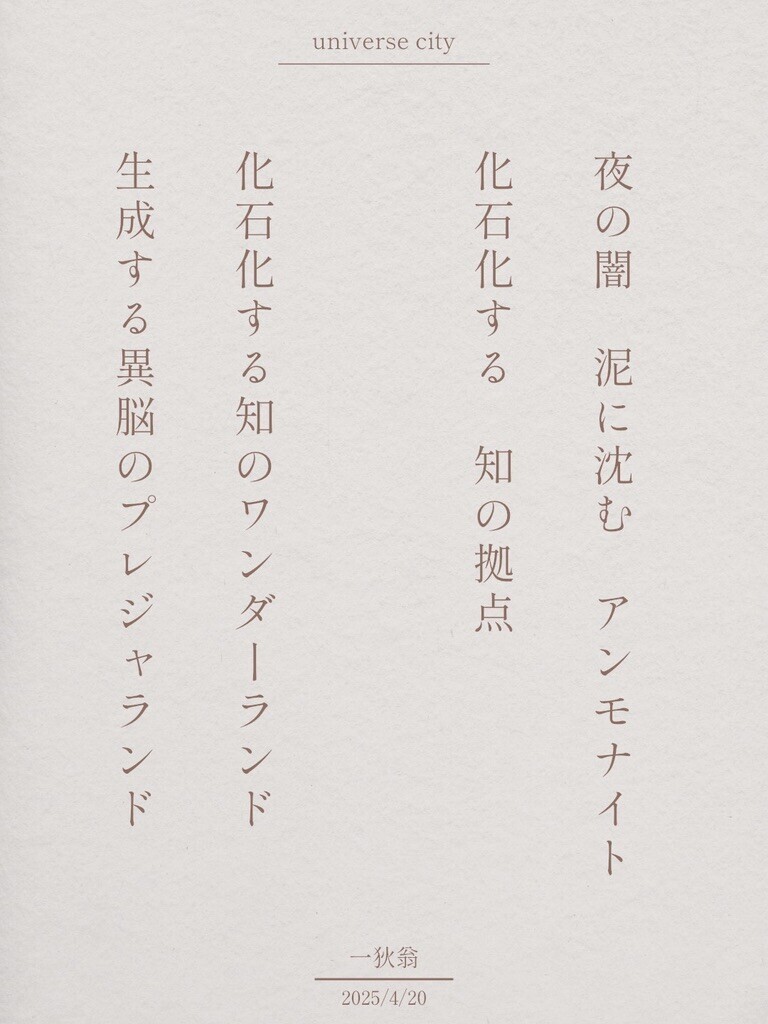 universe city
夜の闇　泥に沈む　アンモナイト
化石化する　知の拠点
化石化する知のワンダーランド
生成する異脳のプレジャランド
一狄翁
2025/4/20